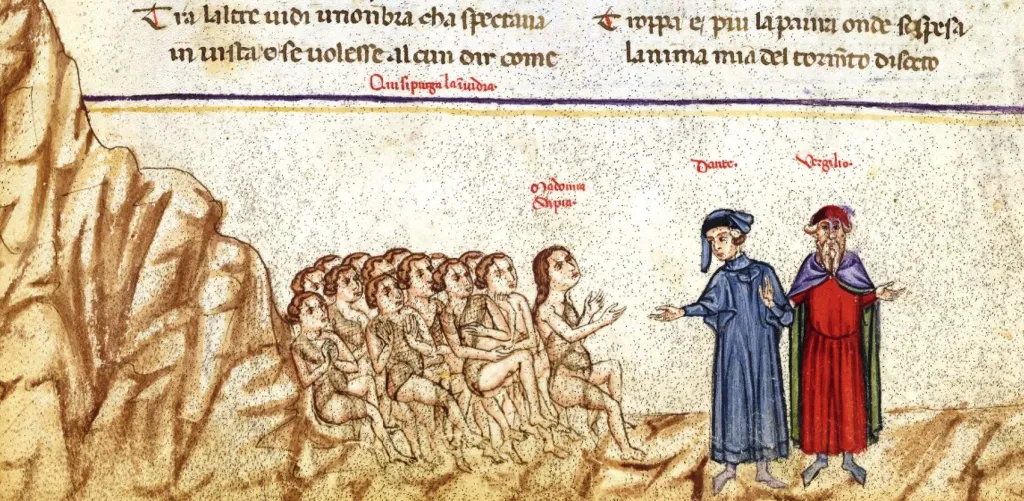 Tra laltre uidi unonbra cha spectaua
in uista e se uolesse al cun dir come
Troppa e piu la paura onde sospesa
lanima mia del torm̃to disocto
Qui si purga la ĩuidia.
Madonna
Sapia.
Dante.
Vergilio.